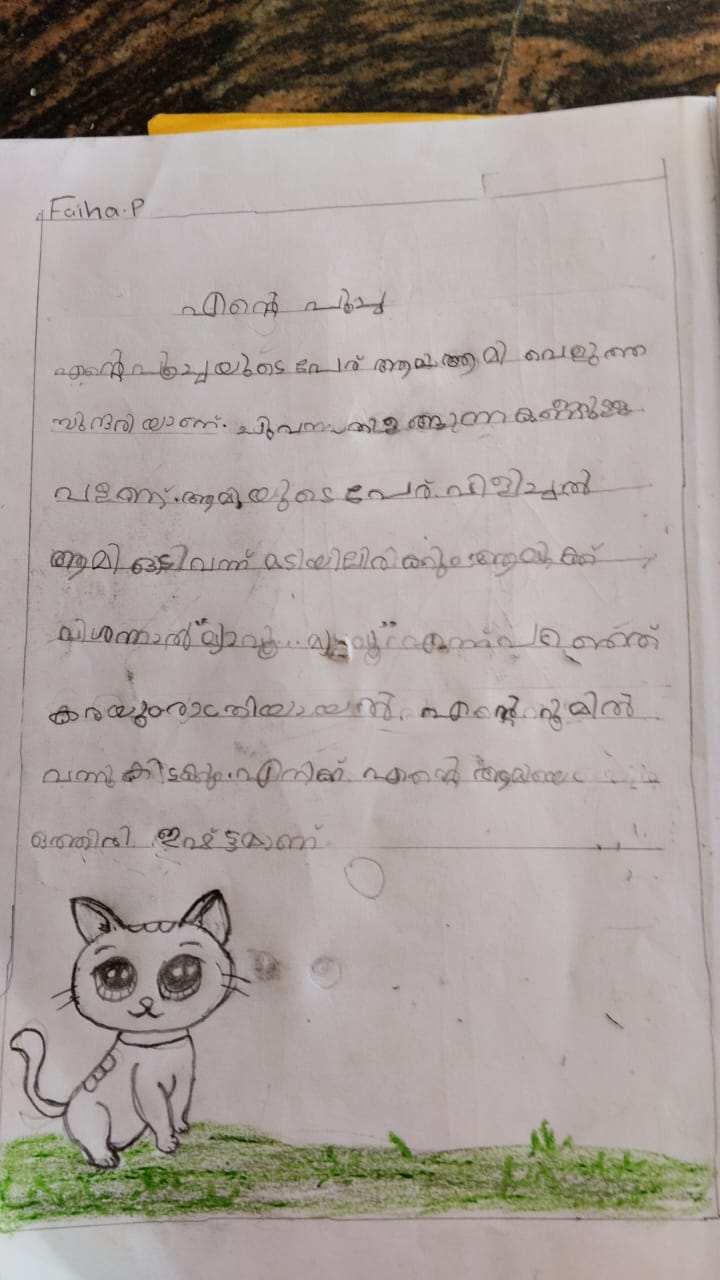 Faiha.P
എന്റെ പൂച്ച
എന്റെ പൂച്ചയുടെ പേര് ആമി വെളുത്ത
സുന്ദരിയാണ്. തിളങ്ങുന്ന കണ്ണുള്ള
ആമിയുടെ പേര് വിളിച്ചാൽ
ആമി ഓടിവന്ന് മടിയിലിരിക്കും. ആമിക്ക്
വിശന്നാൽ "മ്യാവൂ.. മ്യാവൂ" എന്ന് പറഞ്ഞ്
കരയും രാത്രിയായാൽ, എന്റെ റൂമിൽ
വന്നു കിടക്കും. എനിക്ക് എന്റെ
ഒത്തിരി ഇഷ്ട്ടമാണ്